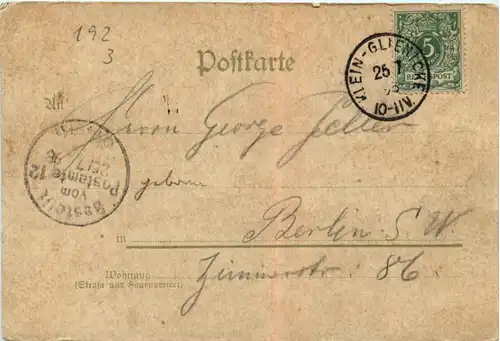 192
3
Postkarte
KLEIN-GLIENICKE
25 7
10-11N
5
REICHSPOST
An
Herrn George Feller
Bestellt
vom
Postamte 12
25/7
96
in Berlin S. W.
Zimmerstr: 86.
Wohnung
(Straße und Hausnummer)